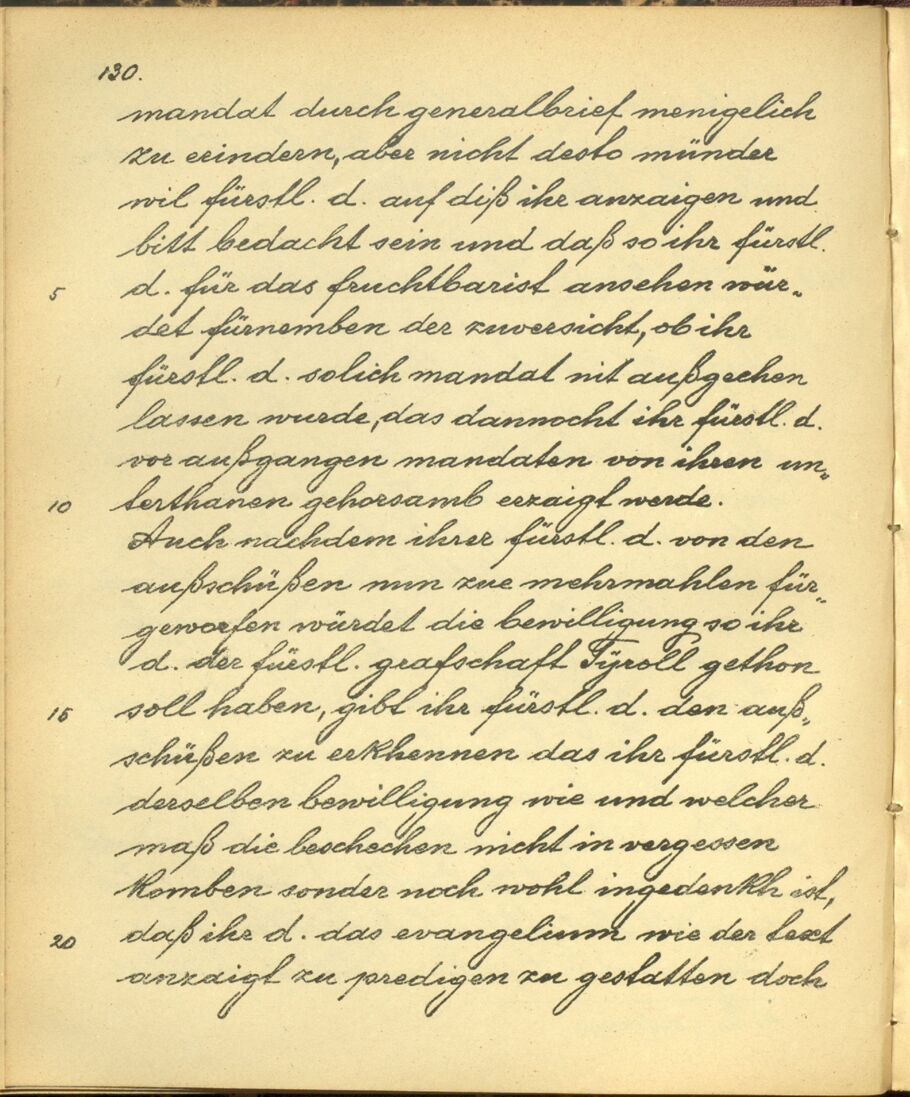 130.
mandat durch generalbrief menigelich
zu erindern, aber nicht desto münder
wil fürstl. d. auf diß ihr anzaigen und
bitt bedacht sein und daß so ihr fürstl.
5 d. für das fruchtbarist ansehen wür„
det fürnemben der zuversicht, ob ihr
fürstl. d. solich mandat nit außgechen
lassen wurde, das dannocht ihr fürstl. d.
vor außgangen mandaten von ihren un„
10 terthanen gehorsamb erzaigt werde.
Auch nachdem ihrer fürstl. d. von den
außschüßen nun zue mehrmahlen für„
geworfen würdet die bewilligung so ihr
d. der fürstl. grafschaft Tÿroll gethon
15 soll haben, gibt ihr fürstl. d. den auß„
schüßen zu erkhennen das ihr fürstl. d.
derselben bewilligung wie und welcher
maß die beschechen nicht in vergessen
komben sonder noch wohl ingedenkh ist,
20 daß ihr d. das evangelium wie der text
anzaigt zu predigen zu gestatten doch